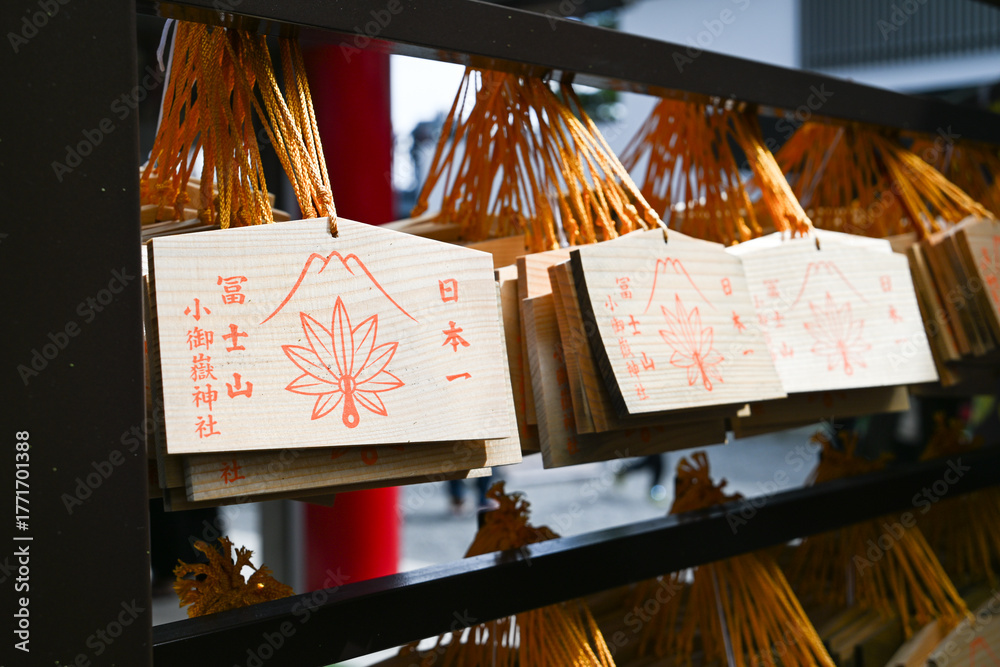 日本一
冨士山
小御嶽神社
日本一
冨士山
小御嶽神社
日本一
冨士山
社
Adobe Stock | #1771701388